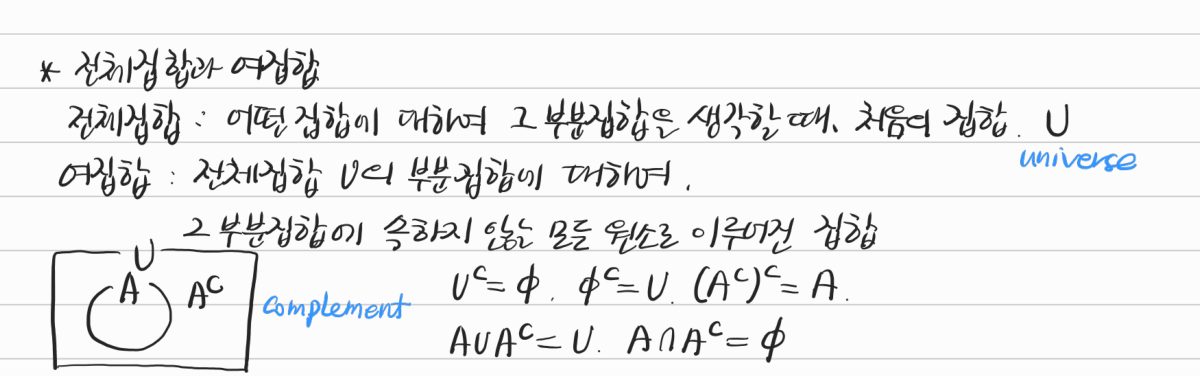 * 전체집합과 여집합
전체집합 : 어떤 집합에 대하여 그 부분집합을 생각할 때, 처음의 집합. U
universe
여집합 : 전체집합 U의 부분집합에 대하여,
그 부분집합에 속하지 않는 모든 원소로 이루어진 집합
U
A Aᶜ complement
Uᶜ = ϕ, ϕᶜ = U, (Aᶜ)ᶜ = A.
A∪Aᶜ = U. A∩Aᶜ = ϕ